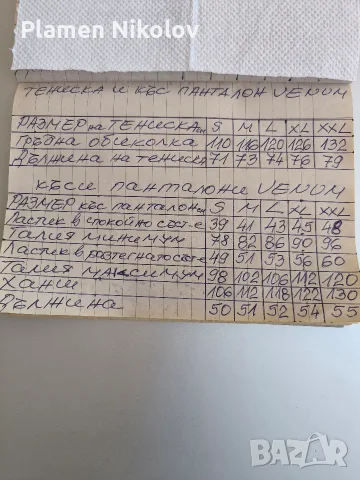 Plamen Nikolov
ТЕНИСКА И КЪС ПАНТАЛОН VENUM
РАЗМЕР на ТЕНИСКА см S M L XL XXL
ГРЪДНА ОБИКОЛКА 110 116 120 126 132
ДЪЛЖИНА на ТЕНИСКА 71 73 74 76 79
КЪСИ ПАНТАЛОНИ VENUM
РАЗМЕР КЪС ПАНТАЛОН см S M L XL XXL
Ластик в спокойно състо-е 39 41 43 45 48
Талия минимум 78 82 86 90 96
Ластик в разтегнато състо-е 49 51 53 56 60
Талия максимум 98 102 106 112 120
Ханш 106 112 118 122 130
Дължина 50 51 52 54 55
BAZAR